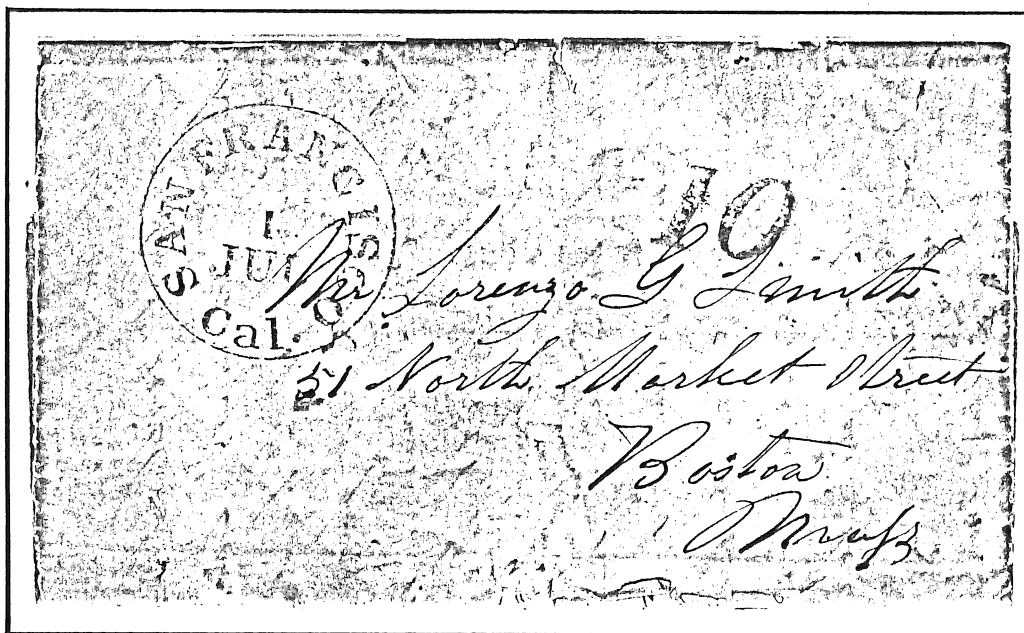 SAN FRANCISCO
1
JUL
Cal.
10
Mr Lorenzo G Smith
51 North Market Street
Boston
Mass